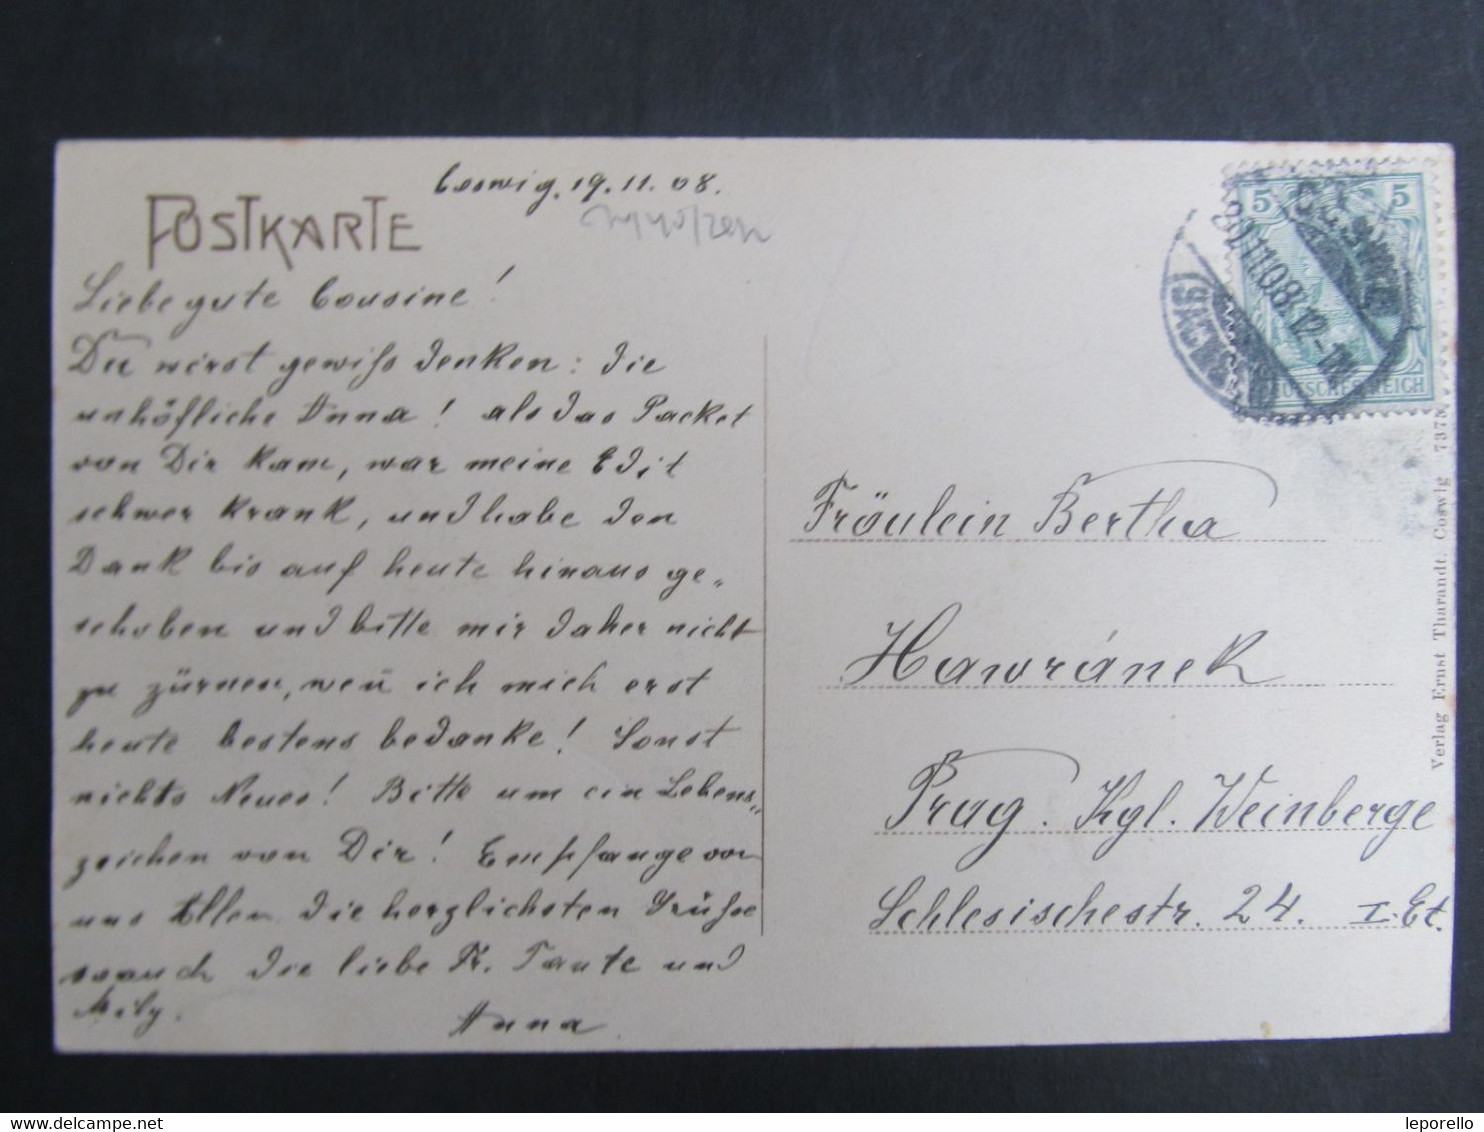 Coswig, 19.11.08.
POSTKARTE
Liebe gute Cousine!
Du wirst gewiß denken: die
unhöfliche Anna! als das Packet
von Dir kam, war meine Edit
schwer krank, und habe den
Dank bis auf heute hinaus ge„
schoben und bitte mir daher nicht
zu zürnen, weñ ich mich erst
heute bestens bedanke! Sonst
nichts Neues! Bitte um ein Lebens„
zeichen von Dir! Empfange von
uns Allen die herzlichsten Grüße
sowie auch die liebe Fr. Tante und
Mily.
Anna
5 5
COSWIG
20.11.08.12-1N
(SACHSEN)
DEUTSCHES REICH
Fräulein Bertha
Hawránek
Prag. Kgl. Weinberge
Schlesischestr. 24. I. Et.
Verlag Ernst Tharandt, Coswig 7378
leporello